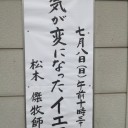 七月八日(日)午前十時半
気が変になったイエ
松本 傑牧師